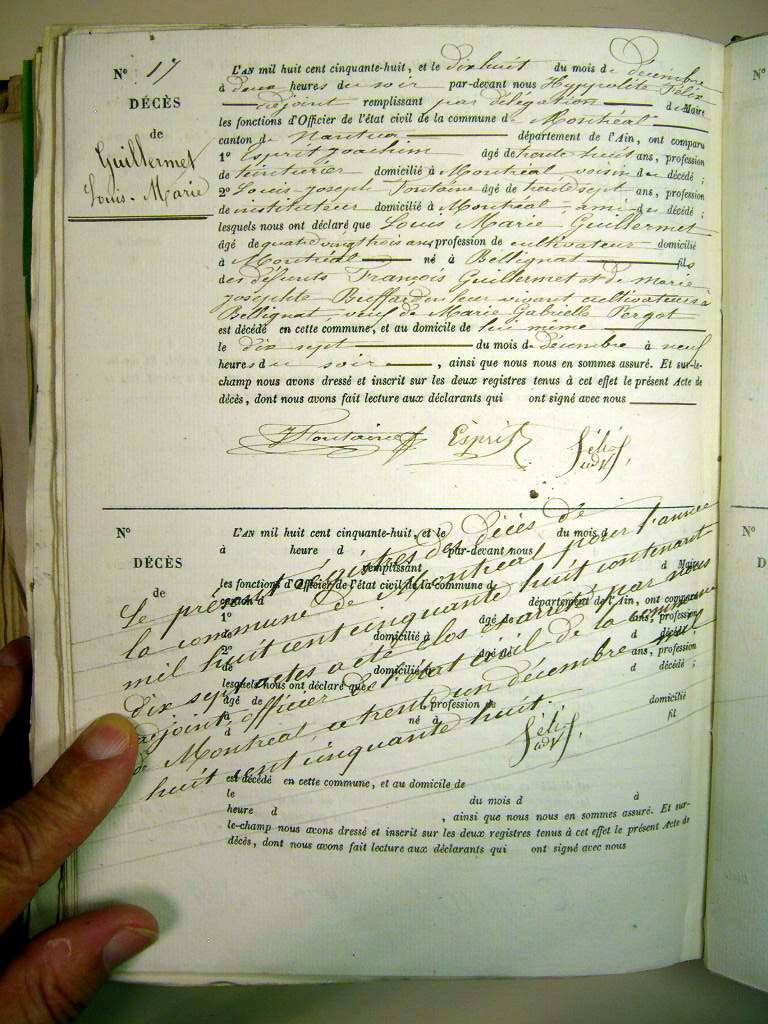 N° 17
DÉCÈS
de
Guillermet
Louis-Marie
L'AN mil huit cent cinquante-huit, et le dix huit du mois de décembre
à deux heures du soir par-devant nous Hyppolite Félix
adjoint remplissant par délégation d Maire
les fonctions d'Officier de l'état civil de la commune de Montréal
canton de Nantua département de l'Ain, ont comparu
1° Esprit Joachim âgé de trente huit ans, profession
de teinturier domicilié à Montréal voisin du décédé ;
2° Louis Joseph Fontaine âgé de trente sept ans, profession
de instituteur domicilié à Montréal, ami du décédé ;
lesquels nous ont déclaré que Louis Marie Guillermet
âgé de quatre vingt trois ans profession de cultivateur domicilié
à Montréal né à Bellignat fils
des défunts François Guillermet et de Marie
Josephte Buffard en leur vivant cultivateurs à
Bellignat, veuf de Marie Gabrielle Pergot
est décédé en cette commune, et au domicile de lui même
le dix sept du mois de décembre à neuf
heures du soir , ainsi que nous nous en sommes assuré. Et sur-le-
champ nous avons dressé et inscrit sur les deux registres tenus à cet effet le présent Acte de
décès, dont nous avons fait lecture aux déclarants qui ont signé avec nous
Fontaine Esprit Félix
adj.
N°
DÉCÈS
de
L'AN mil huit cent cinquante-huit, et le du mois d
à heure d par-devant nous
remplissant d Maire
les fonctions d'Officier de l'état civil de la commune de
canton d département de l'Ain, ont comparu
1° âgé de ans, profession
de domicilié à d décédé ;
2° âgé de ans, profession
de domicilié à d décédé ;
lesquels nous ont déclaré que
âgé de profession de domicilié
à né à fil
d
est décédé en cette commune, et au domicile de
le du mois d à
heure d , ainsi que nous nous en sommes assuré. Et sur-
le-champ nous avons dressé et inscrit sur les deux registres tenus à cet effet le présent Acte de
décès, dont nous avons fait lecture aux déclarants qui ont signé avec nous
Le présent régistres des décès de
la commune de Montréal pour l'année
mil huit cent cinquante huit contenant
dix sept actes a été clos et arrêté par nous
adjoint officier de l'état civil de la commune
de Montréal, a trente un décembre mil
huit cent cinquante huit.
Félix
adj.
N°
N°